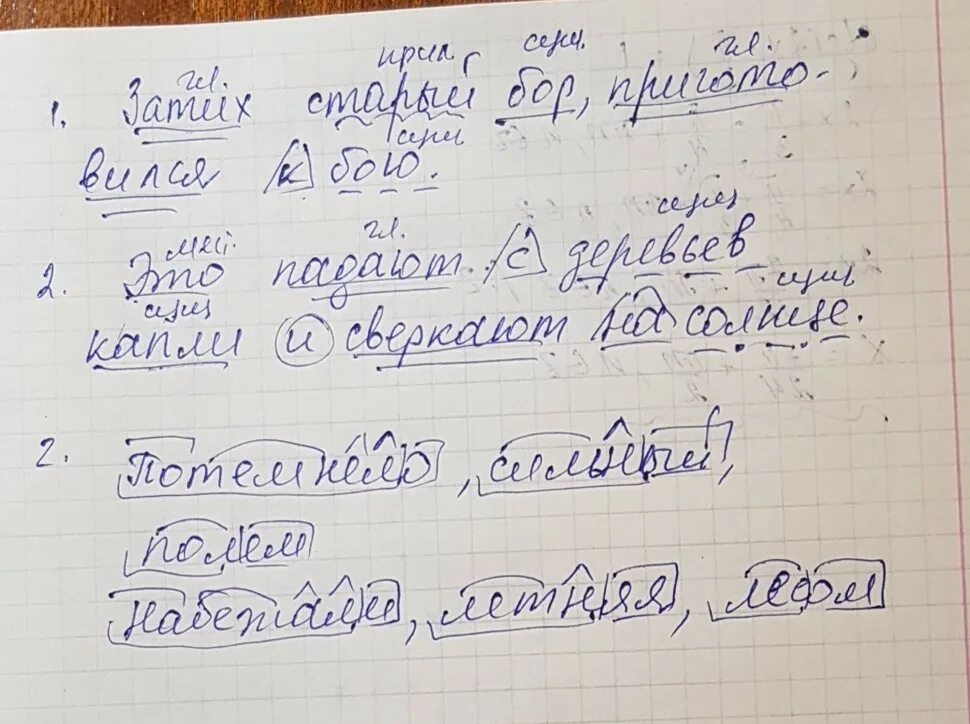 прил. сущ. гл.
гл.
1. Затих старый бор, пригото-
сущ
вился (к) бою.
сущ
мес. гл.
2. Это падают (с) деревьев
сущ сущ
капли (и) сверкают на солнце.
2. Потемнело, сильный,
полем
набежали, летняя, лесом